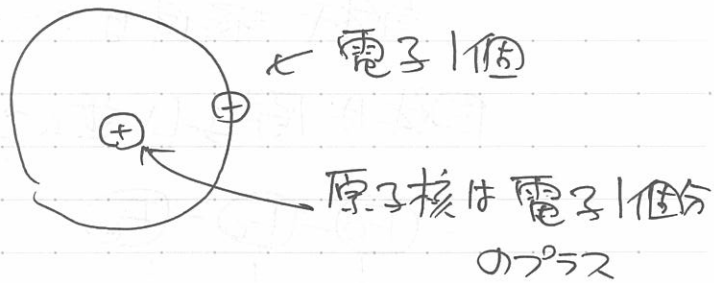 ← 電子1個
⊖
⊕
原子核は電子1個分
のプラス